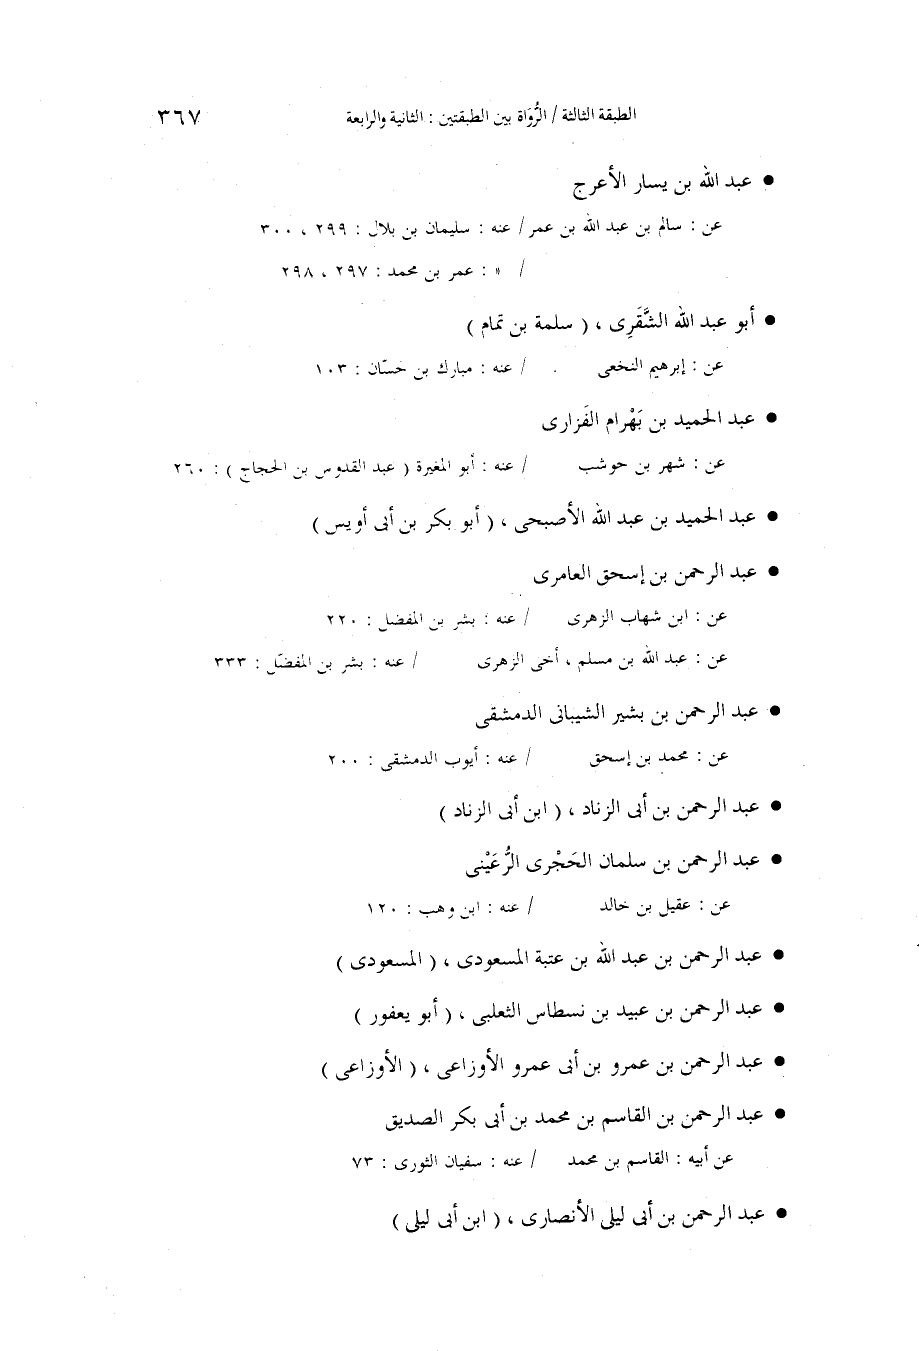 الطبقة الثالثة / الرُّوَاة بين الطبقتين : الثانية والرابعة ٣٦٧
● عبد الله بن يسار الأعرج
عن : سالم بن عبد الله بن عمر / عنه : سليمان بن بلال : ٢٩٩ ، ٣٠٠
/ » : عمر بن محمد : ٢٩٧ ، ٢٩٨
● أبو عبد الله الشَّقَرِى ، ( سلمة بن تمام )
عن : إبرهيم النخعى / عنه : مبارك بن حَسّان : ١٠٣
● عبد الحميد بن بَهْرام الفَزارى
عن : شهر بن حوشب / عنه : أبو المغيرة ( عبد القدوس بن الحجاج ) : ٢٦٠
● عبد الحميد بن عبد الله الأصبحى ، ( أبو بكر بن أبى أويس )
● عبد الرحمن بن إسحق العامرى
عن : ابن شهاب الزهرى / عنه : بشر بن المفضل : ٢٢٠
عن : عبد الله بن مسلم ، أخى الزهرى / عنه : بشر بن المفضّل : ٣٣٣
● عبد الرحمن بن بشير الشيبانى الدمشقى
عن : محمد بن إسحق / عنه : أيوب الدمشقى : ٢٠٠
● عبد الرحمن بن أبى الزناد ، ( ابن أبى الزناد )
● عبد الرحمن بن سلمان الحَجْرى الرُّعَيْنى
عن : عقيل بن خالد / عنه : ابن وهب : ١٢٠
● عبد الرحمن بن عبد الله بن عتبة المسعودى ، ( المسعودى )
● عبد الرحمن بن عبيد بن نسطاس الثعلبى ، ( أبو يعفور )
● عبد الرحمن بن عمرو بن أبى عمرو الأوزاعى ، ( الأوزاعى )
● عبد الرحمن بن القاسم بن محمد بن أبى بكر الصديق
عن أبيه : القاسم بن محمد / عنه : سفيان الثورى : ٧٣
● عبد الرحمن بن أبى ليلى الأنصارى ، ( ابن أبى ليلى )